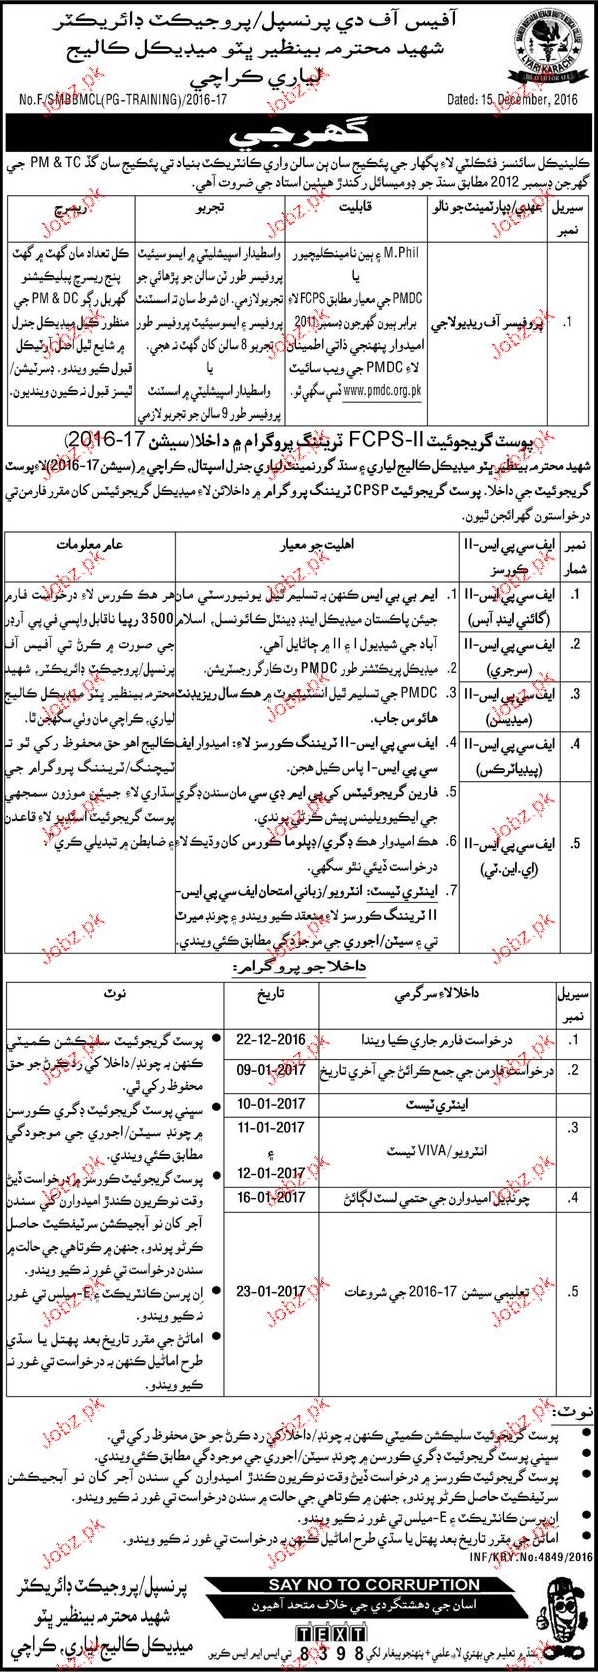 آفيس آف دي پرنسپل/پروجيڪٽ ڊائريڪٽر
شهيد محترمه بينظير ڀٽو ميڊيڪل ڪاليج
لياري ڪراچي
LYARI KARACHI
No.F/SMBBMCL(PG-TRAINING)/2016-17
Dated: 15 December, 2016
گهرجي
ڪلينيڪل سائنسز فيڪلٽي لاءِ پگهار جي پئڪيج سان ٻن سالن واري ڪانٽريڪٽ بنياد تي پئڪيج سان گڏ PM & TC جي
گهرجن ڊسمبر 2012 مطابق سنڌ جو ڊوميسائل رکندڙ هيٺين استاد جي ضرورت آهي.
سيريل نمبر
عهدي/ڊپارٽمينٽ جو نالو
قابليت
تجربو
ريسرچ
1.
پروفيسر آف ريڊيولاجي
M.Phil ۽ ٻين نامينڪليچيور
يا
PMDC جي معيار مطابق FCPS لاءِ
برابر ٻيون گهرجون ڊسمبر 2011
اميدوار پنهنجي ذاتي اطمينان
لاءِ PMDC جي ويب سائيٽ
www.pmdc.org.pk ڏسي سگهي ٿو.
واسطيدار اسپيشلٽي ۾ ايسوسيئيٽ
پروفيسر طور ٽن سالن جو پڙهائي جو
تجربو لازمي. ان شرط سان ته اسسٽنٽ
پروفيسر ۽ ايسوسيئيٽ پروفيسر طور
تجربو 8 سالن کان گهٽ نه هجي.
يا
واسطيدار اسپيشلٽي ۾ اسسٽنٽ
پروفيسر طور 9 سالن جو تجربو لازمي
ڪل تعداد مان گهٽ ۾ گهٽ
پنج ريسرچ پبليڪيشنو
گهربل رڳو PM & DC جي
منظور ٿيل ميڊيڪل جنرل
۾ شايع ٿيل اصل آرٽيڪل
قبول ڪيو ويندو. ڊسرٽيشن/
ٿيسز قبول نه ڪيون وينديون.
پوسٽ گريجوئيٽ FCPS-II ٽريننگ پروگرام ۾ داخلا (سيشن 17-2016)
شهيد محترمه بينظير ڀٽو ميڊيڪل ڪاليج لياري ۽ سنڌ گورنمينٽ لياري جنرل اسپتال، ڪراچي ۾ (سيشن 17-2016) لاءِ پوسٽ
گريجوئيٽ جي داخلا. پوسٽ گريجوئيٽ CPSP ٽريننگ پروگرام ۾ داخلائن لاءِ ميڊيڪل گريجوئيٽس کان مقرر فارمن تي
درخواستون گهرائجن ٿيون.
نمبر شمار
ايف سي پي ايس-II ڪورسز
اهليت جو معيار
عام معلومات
1. ايف سي پي ايس-II (گائني اينڊ آبس)
2. ايف سي پي ايس-II (سرجري)
3. ايف سي پي ايس-II (ميڊيسن)
4. ايف سي پي ايس-II (پيڊياٽرڪس)
5. ايف سي پي ايس-II (اي.اين.ٽي)
1. ايم بي بي ايس ڪنهن به تسليم ٿيل يونيورسٽي مان
جيئن پاڪستان ميڊيڪل اينڊ ڊينٽل ڪائونسل، اسلام
آباد جي شيڊيول I ۽ II ۾ ڄاڻايل آهي.
2. ميڊيڪل پريڪٽشنر طور PMDC وٽ ڪارگر رجسٽريشن.
3. PMDC جي تسليم ٿيل انسٽيٽيوٽ ۾ هڪ سال ريزيڊنٽ
هائوس جاب.
4. ايف سي پي ايس-II ٽريننگ ڪورسز لاءِ: اميدوار ايف
سي پي ايس-I پاس ڪيل هجن.
5. فارين گريجوئيٽس کي پي ايم ڊي سي مان سندن ڊگري
جي ايڪيوويلينس پيش ڪرڻي پوندي.
6. هڪ اميدوار هڪ ڊگري/ڊپلوما ڪورس کان وڌيڪ لاءِ
درخواست ڏيئي نٿو سگهي.
7. اينٽري ٽيسٽ: انٽرويو/زباني امتحان ايف سي پي ايس-
II ٽريننگ ڪورسز لاءِ منعقد ڪيو ويندو ۽ چونڊ ميرٽ
تي ۽ سيٽن/اجوري جي موجودگي مطابق ڪئي ويندي.
هر هڪ ڪورس لاءِ درخواست فارم
3500 رپيا ناقابل واپسي في پي آرڊر
جي صورت ۾ ڪرڻ تي آفيس آف
پرنسپل/پروجيڪٽ ڊائريڪٽر، شهيد
محترمه بينظير ڀٽو ميڊيڪل ڪاليج
لياري، ڪراچي مان وٺي سگهجن ٿا.
ڪاليج اهو حق محفوظ رکي ٿو ته
ٽيچنگ/ٽريننگ پروگرام جي
سڌاري لاءِ جيئن موزون سمجهي
پوسٽ گريجوئيٽ اسٽڊيز لاءِ قاعدن
۽ ضابطن ۾ تبديلي ڪري.
داخلا جو پروگرام:
سيريل نمبر
داخلا لاءِ سرگرمي
تاريخ
نوٽ
1. درخواست فارم جاري ڪيا ويندا 22-12-2016
2. درخواست فارمن جي جمع ڪرائڻ جي آخري تاريخ 09-01-2017
3. اينٽري ٽيسٽ 10-01-2017
انٽرويو/VIVA ٽيسٽ 11-01-2017 ۽ 12-01-2017
4. چونڊيل اميدوارن جي حتمي لسٽ لڳائڻ 16-01-2017
5. تعليمي سيشن 17-2016 جي شروعات 23-01-2017
• پوسٽ گريجوئيٽ سليڪشن ڪميٽي
ڪنهن به چونڊ/داخلا کي رد ڪرڻ جو حق
محفوظ رکي ٿي.
• سڀني پوسٽ گريجوئيٽ ڊگري ڪورسن
۾ چونڊ سيٽن/اجوري جي موجودگي
مطابق ڪئي ويندي.
• پوسٽ گريجوئيٽ ڪورسز ۾ درخواست ڏيڻ
وقت نوڪريون ڪندڙ اميدوارن کي سندن
آجر کان نو آبجيڪشن سرٽيفڪيٽ حاصل
ڪرڻو پوندو، جنهن ۾ ڪوتاهي جي حالت ۾
سندن درخواست تي غور نه ڪيو ويندو.
• اِن پرسن ڪانٽريڪٽ ۽ E-ميلس تي غور
نه ڪيو ويندو.
• امائڻ جي مقرر تاريخ بعد پهتل يا سڌي
طرح امائيل ڪنهن به درخواست تي غور نه
ڪيو ويندو.
نوٽ:
• پوسٽ گريجوئيٽ سليڪشن ڪميٽي ڪنهن به چونڊ/داخلا کي رد ڪرڻ جو حق محفوظ رکي ٿي.
• سڀني پوسٽ گريجوئيٽ ڊگري ڪورسن ۾ چونڊ سيٽن/اجوري جي موجودگي مطابق ڪئي ويندي.
• پوسٽ گريجوئيٽ ڪورسز ۾ درخواست ڏيڻ وقت نوڪريون ڪندڙ اميدوارن کي سندن آجر کان نو آبجيڪشن
سرٽيفڪيٽ حاصل ڪرڻو پوندو، جنهن ۾ ڪوتاهي جي حالت ۾ سندن درخواست تي غور نه ڪيو ويندو.
• اِن پرسن ڪانٽريڪٽ ۽ E-ميلس تي غور نه ڪيو ويندو.
• امائڻ جي مقرر تاريخ بعد پهتل يا سڌي طرح امائيل ڪنهن به درخواست تي غور نه ڪيو ويندو.
INF/KRY.No:4849/2016
پرنسپل/پروجيڪٽ ڊائريڪٽر
شهيد محترمه بينظير ڀٽو
ميڊيڪل ڪاليج لياري، ڪراچي
SAY NO TO CORRUPTION
اسان جي دهشتگردي جي خلاف متحد آهيون
TEXT
سنڌ ۾ تعليم جي بهتري لاءِ علمي + پنهنجو پيغام لکي 8398 تي ايس ايم ايس ڪريو
Jobz.pk